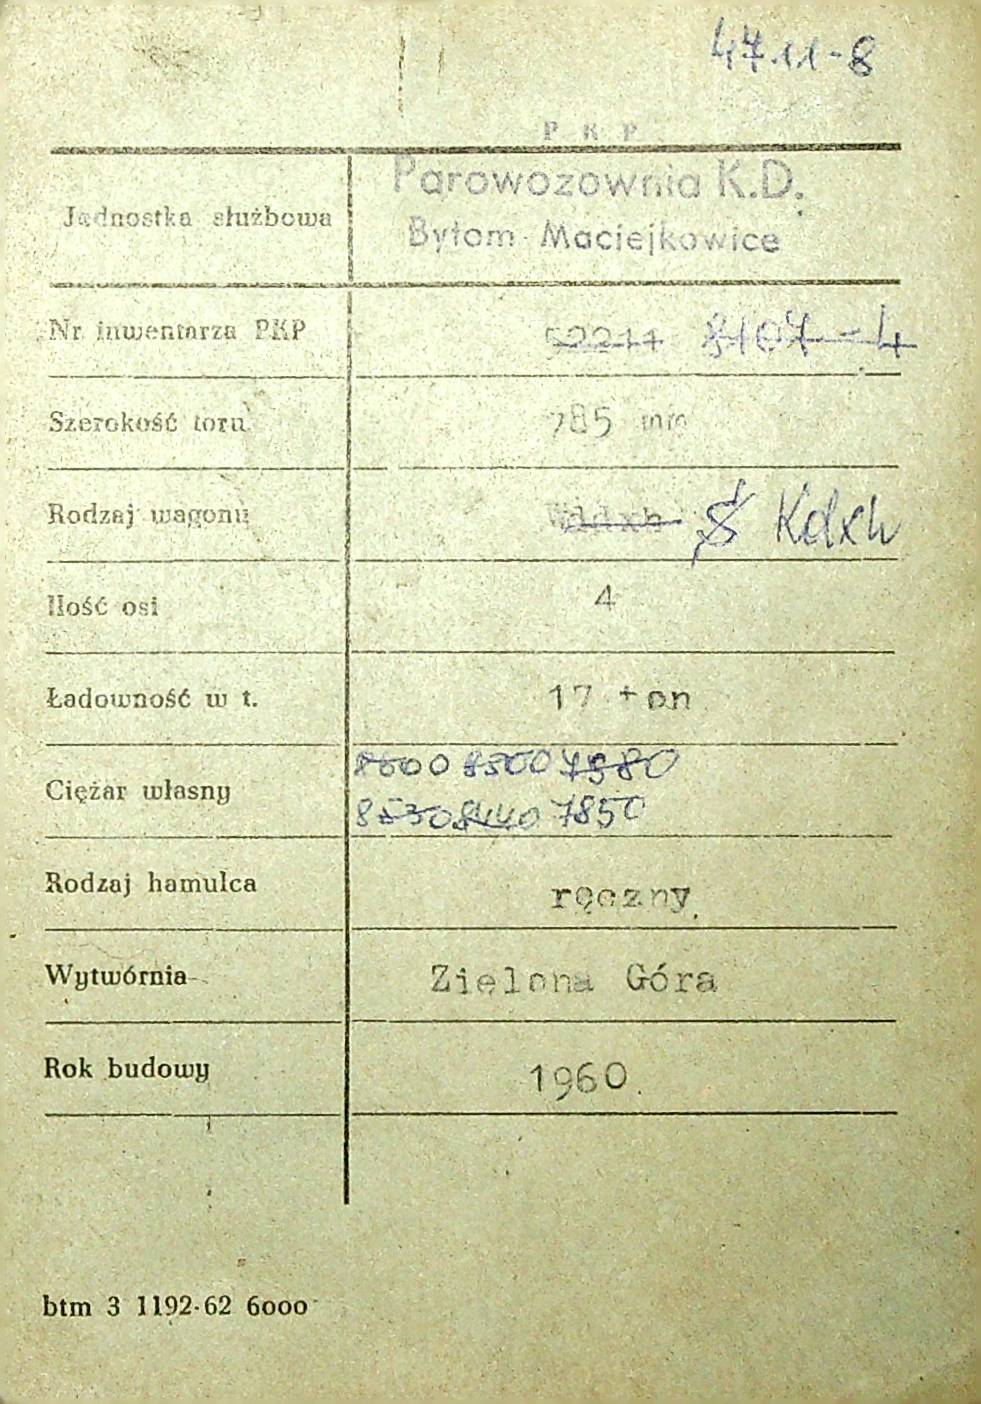 4711-8
P K P
Parowozownia K.D.
Jednostka służbowa
Bytom Maciejkowice
Nr inwentarza PKP 52211 8107-4
Szerokość toru 785 mm
Rodzaj wagonu Wddxh S Kdxh
Ilość osi 4
Ładowność w t. 17 ton
8600 8500 7980
Ciężar własny
8530 8440 7850
Rodzaj hamulca ręczny
Wytwórnia Zielona Góra
Rok budowy 1960
btm 3 1192-62 6000